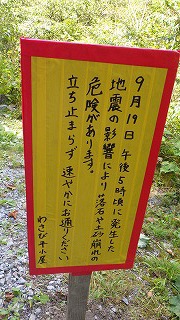 9月19日 午後5時頃に発生した
地震の影響により落石や土砂崩れの
危険があります。
立ち止まらず 速やかにお通りください
わさび平小屋